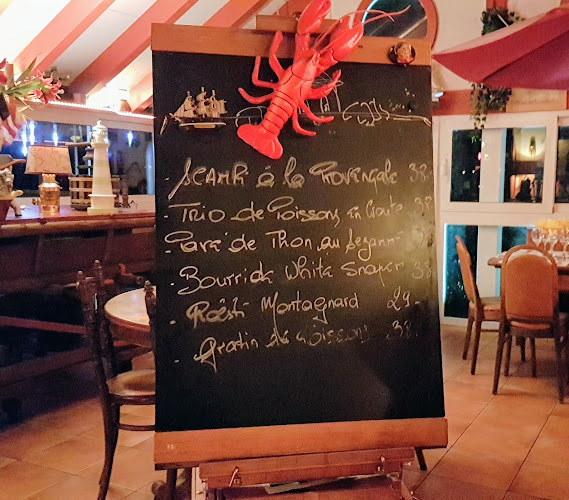 - SCAMPI à la Provençale 38.-
- Trio de Poissons en Croute 38.
- Pavé de Thon au Sezam
- Bourrida White Snaper 38
- Roësti Montagnard 29.-
- Gratin de Poissons 38.